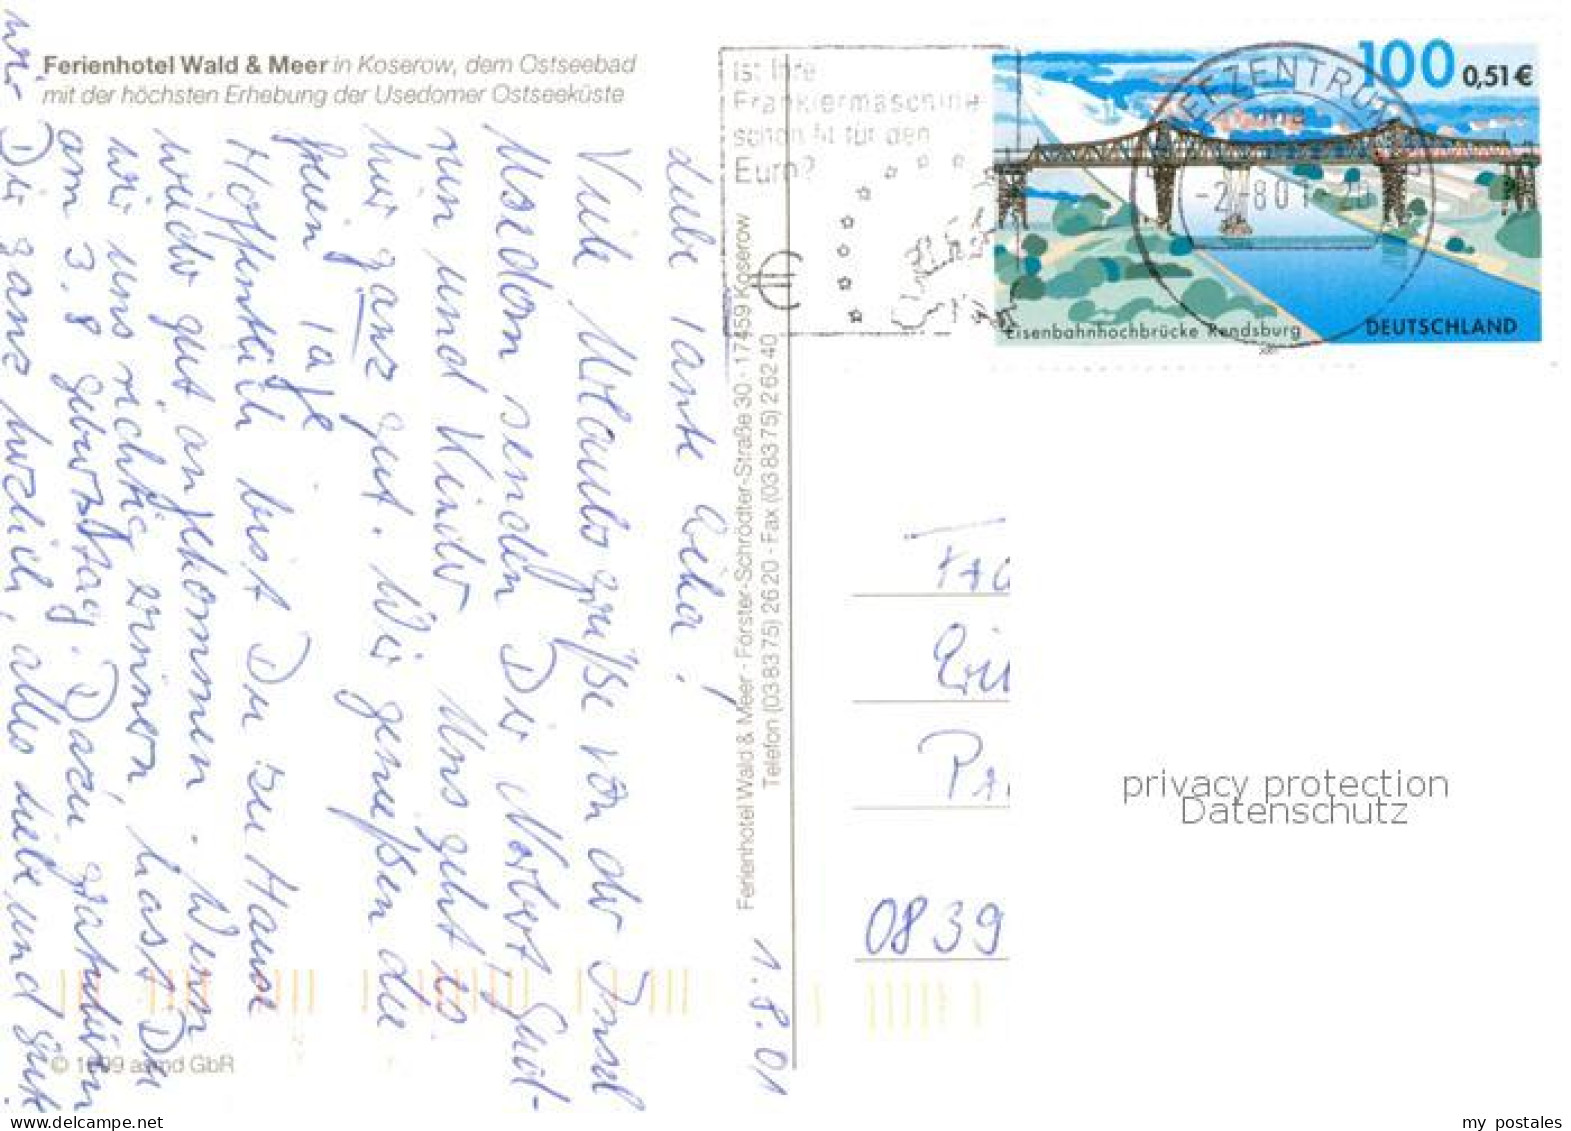 Ferienhotel Wald & Meer in Koserow, dem Ostseebad
mit der höchsten Erhebung der Usedomer Ostseeküste
1.8.01
Liebe Tante Cilla!
Viele Urlaubsgrüße von der Insel
Usedom senden Dir Norbert, Gud-
run und Kinder. Uns geht es
hier ganz gut. Wir genießen die
freien Tage
Hoffentlich bist Du zu Hause
wieder gut angekommen. Wenn
wir uns richtig erinnern, hast Du
am 3.8 Geburtstag. Dazu gratulieren
wir Dir ganz herzlich, alles Liebe und Gute
© 1999 asmd GbR
Ferienhotel Wald & Meer - Förster-Schrödter-Straße 30 - 17459 Koserow
Telefon (03 83 75) 26 20 - Fax (03 83 75) 2 62 40
Ist Ihre
Frankiermaschine
schon fit für den
Euro?
BRIEFZENTRUM
100 0,51€
Eisenbahnhochbrücke Rendsburg
DEUTSCHLAND
0839
privacy protection
Datenschutz
my_postales